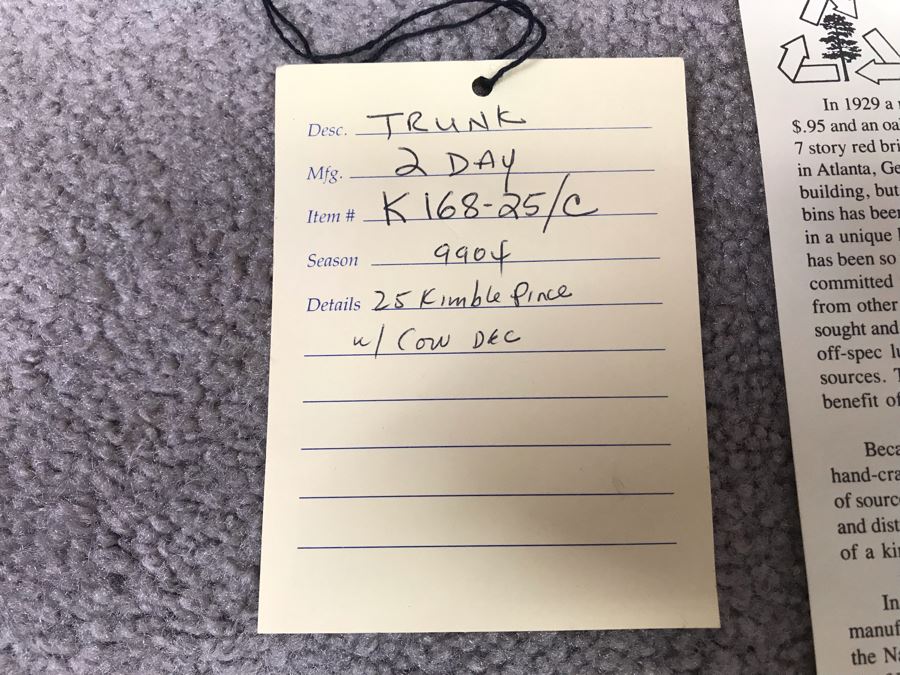 Desc. TRUNK
Mfg. 2 DAY
Item # K168-25/C
Season 9904
Details 25 Kimble Pince
w/ Cow DEC
In 1929 a
$.95 and an oa
7 story red bri
in Atlanta, Ge
building, but
bins has been
in a unique
has been so
committed
from other
sought and
off-spec lu
sources. T
benefit of
Beca
hand-cra
of sourc
and dist
of a ki
In
manuf
the Na